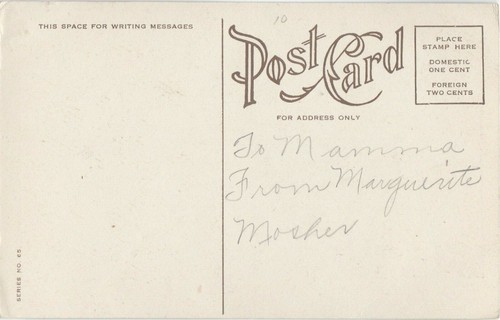 THIS SPACE FOR WRITING MESSAGES
10
Post Card
FOR ADDRESS ONLY
PLACE
STAMP HERE
DOMESTIC
ONE CENT
FOREIGN
TWO CENTS
To Mamma
From Marguerite
Mosher
SERIES NO. 65